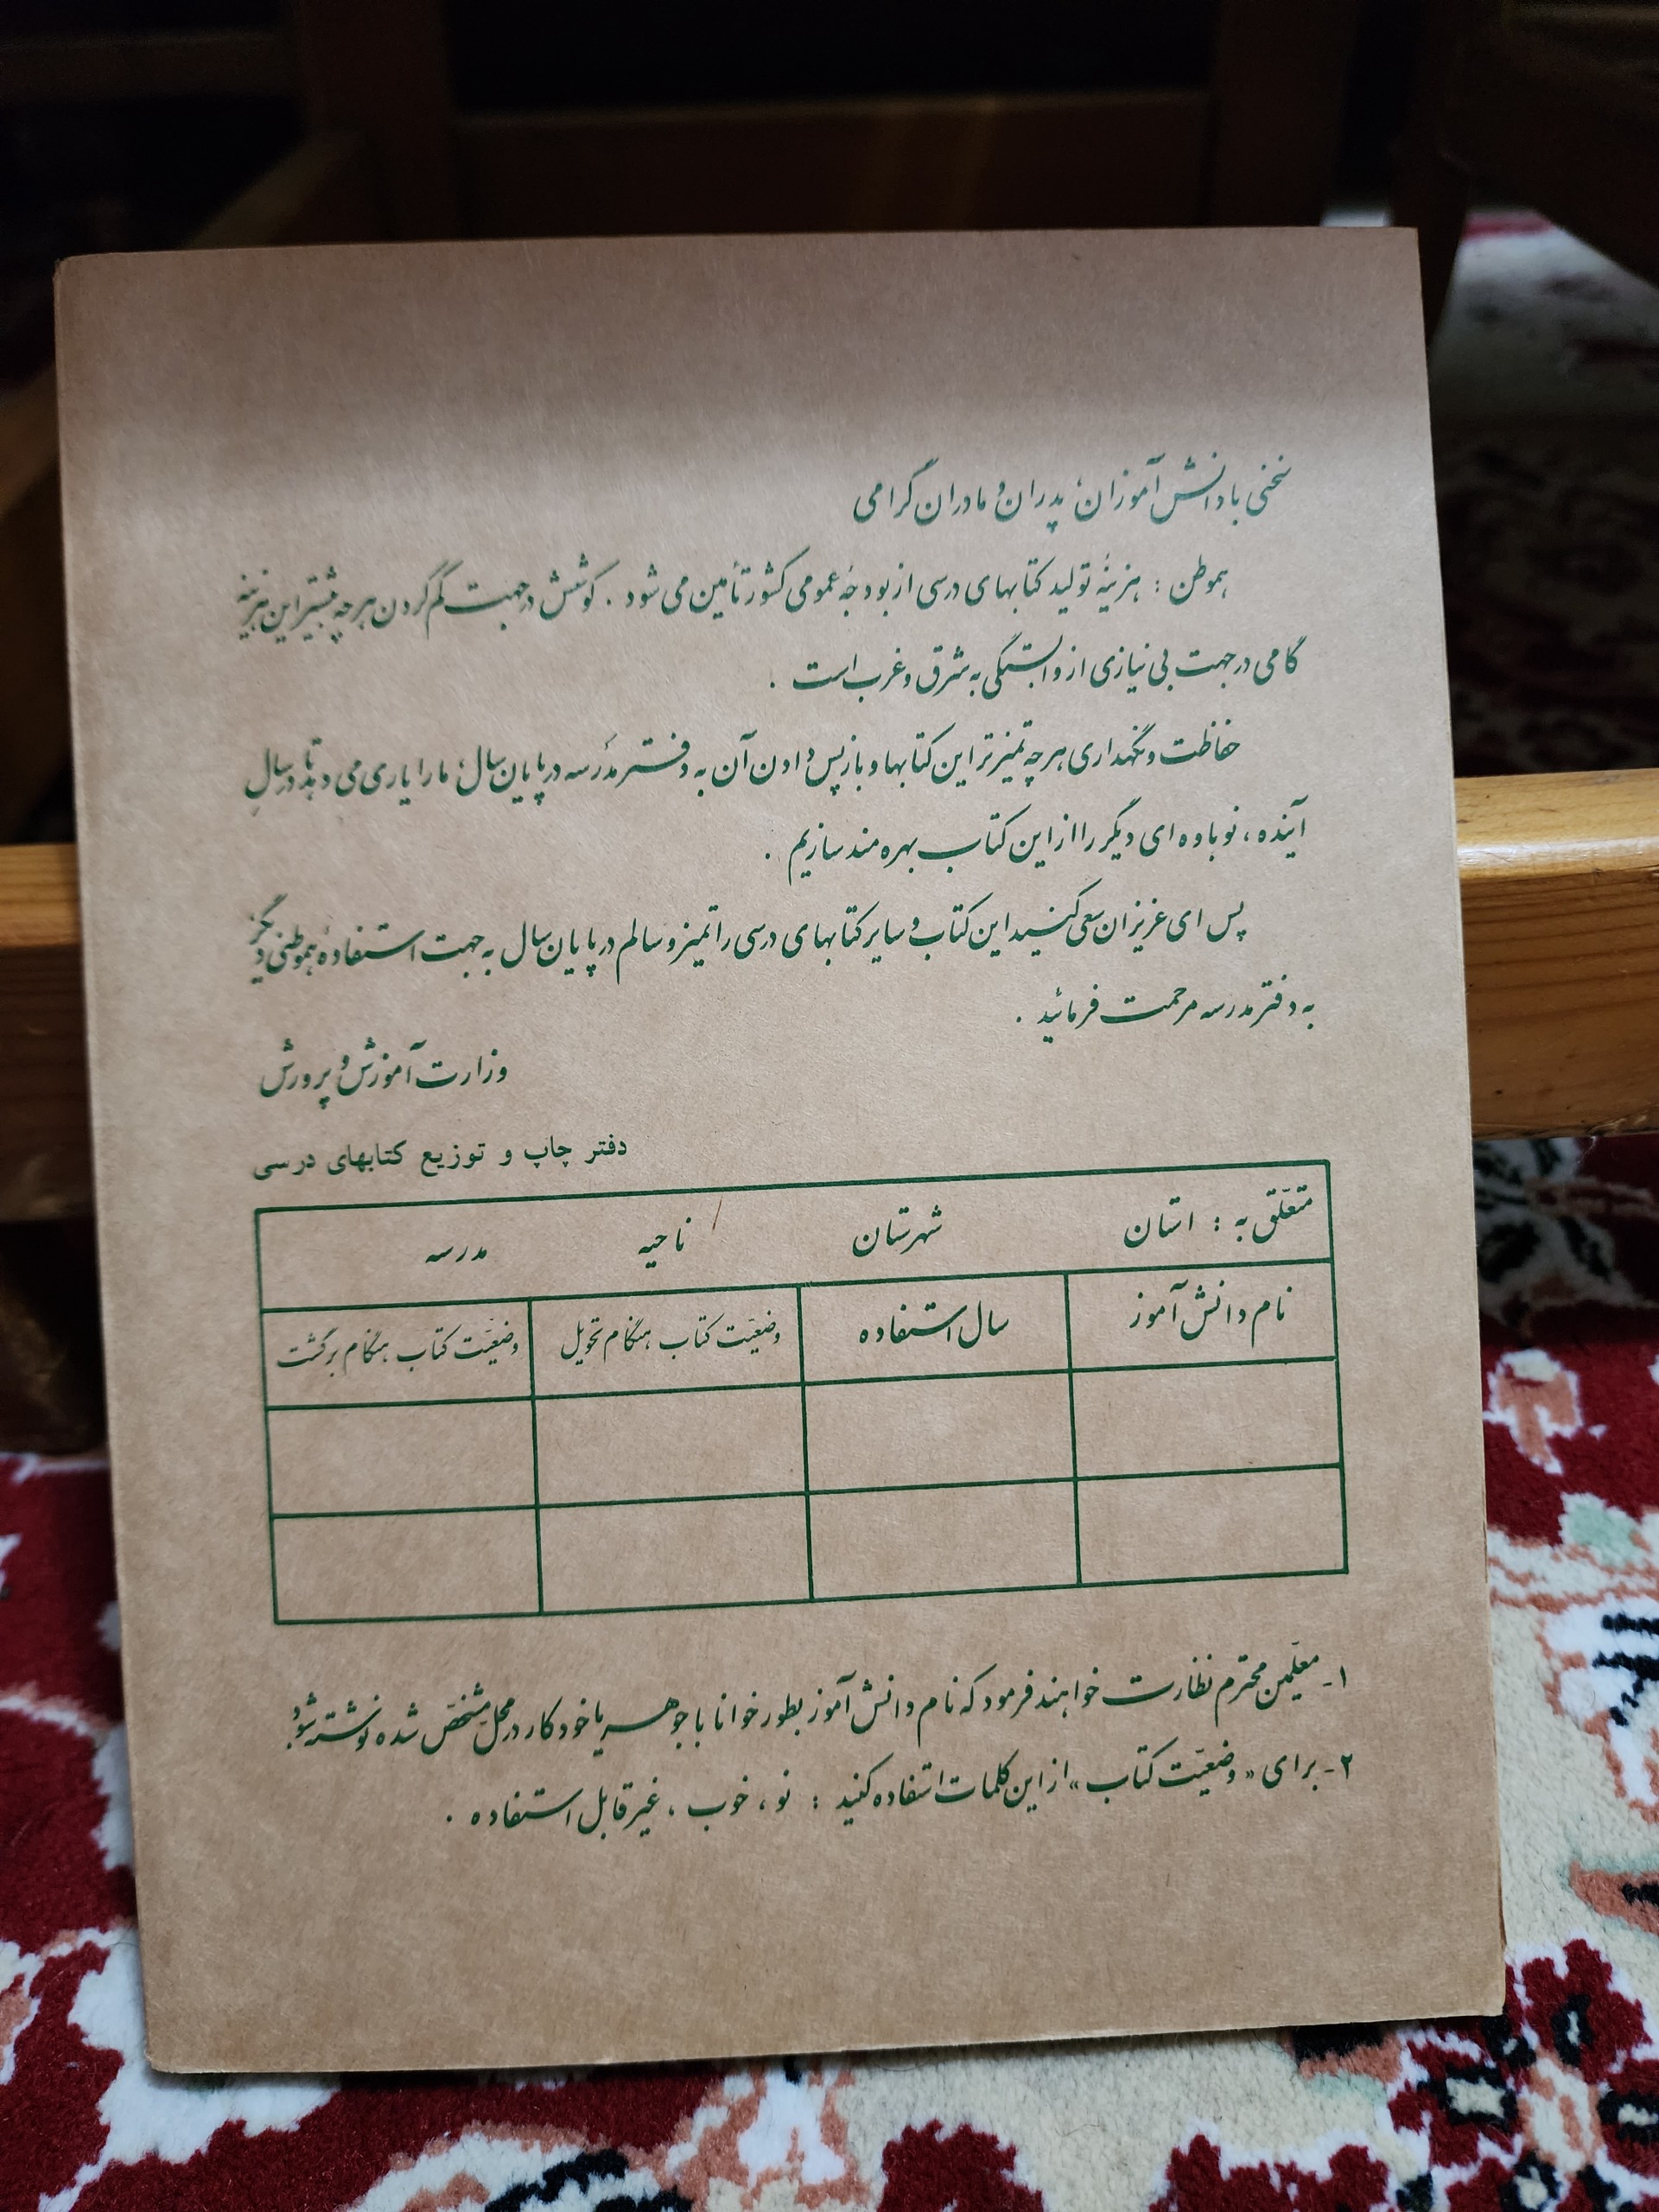 سخنی با دانش‌آموزان، پدران و مادران گرامی
هموطن : هزینهٔ تولید کتابهای درسی از بودجهٔ عمومی کشور تأمین می‌شود . کوشش در جهت کم کردن هرچه بیشتر این هزینه
گامی در جهت بی‌نیازی از وابستگی به شرق و غرب است .
حفاظت و نگهداری هرچه تمیزتر این کتابها و بازپس دادن آن به دفتر مدرسه در پایان سال، ما را یاری می‌دهد تا در سال
آینده ، نوباوه‌ای دیگر را از این کتاب بهره‌مند سازیم .
پس ای عزیزان سعی کنید این کتاب و سایر کتابهای درسی را تمیز و سالم در پایان سال به جهت استفادهٔ هموطنی دیگر
به دفتر مدرسه مرحمت فرمائید .
وزارت آموزش و پرورش
دفتر چاپ و توزیع کتابهای درسی
متعلّق به : استان شهرستان ناحیه مدرسه
نام دانش‌آموز سال استفاده وضعیّت کتاب هنگام تحویل وضعیّت کتاب هنگام برگشت
۱- معلّمین محترم نظارت خواهند فرمود که نام دانش‌آموز بطور خوانا با جوهر یا خودکار در محلّ مشخّص شده نوشته شود.
۲- برای «وضعیّت کتاب» از این کلمات استفاده کنید : نو ، خوب ، غیرقابل استفاده .